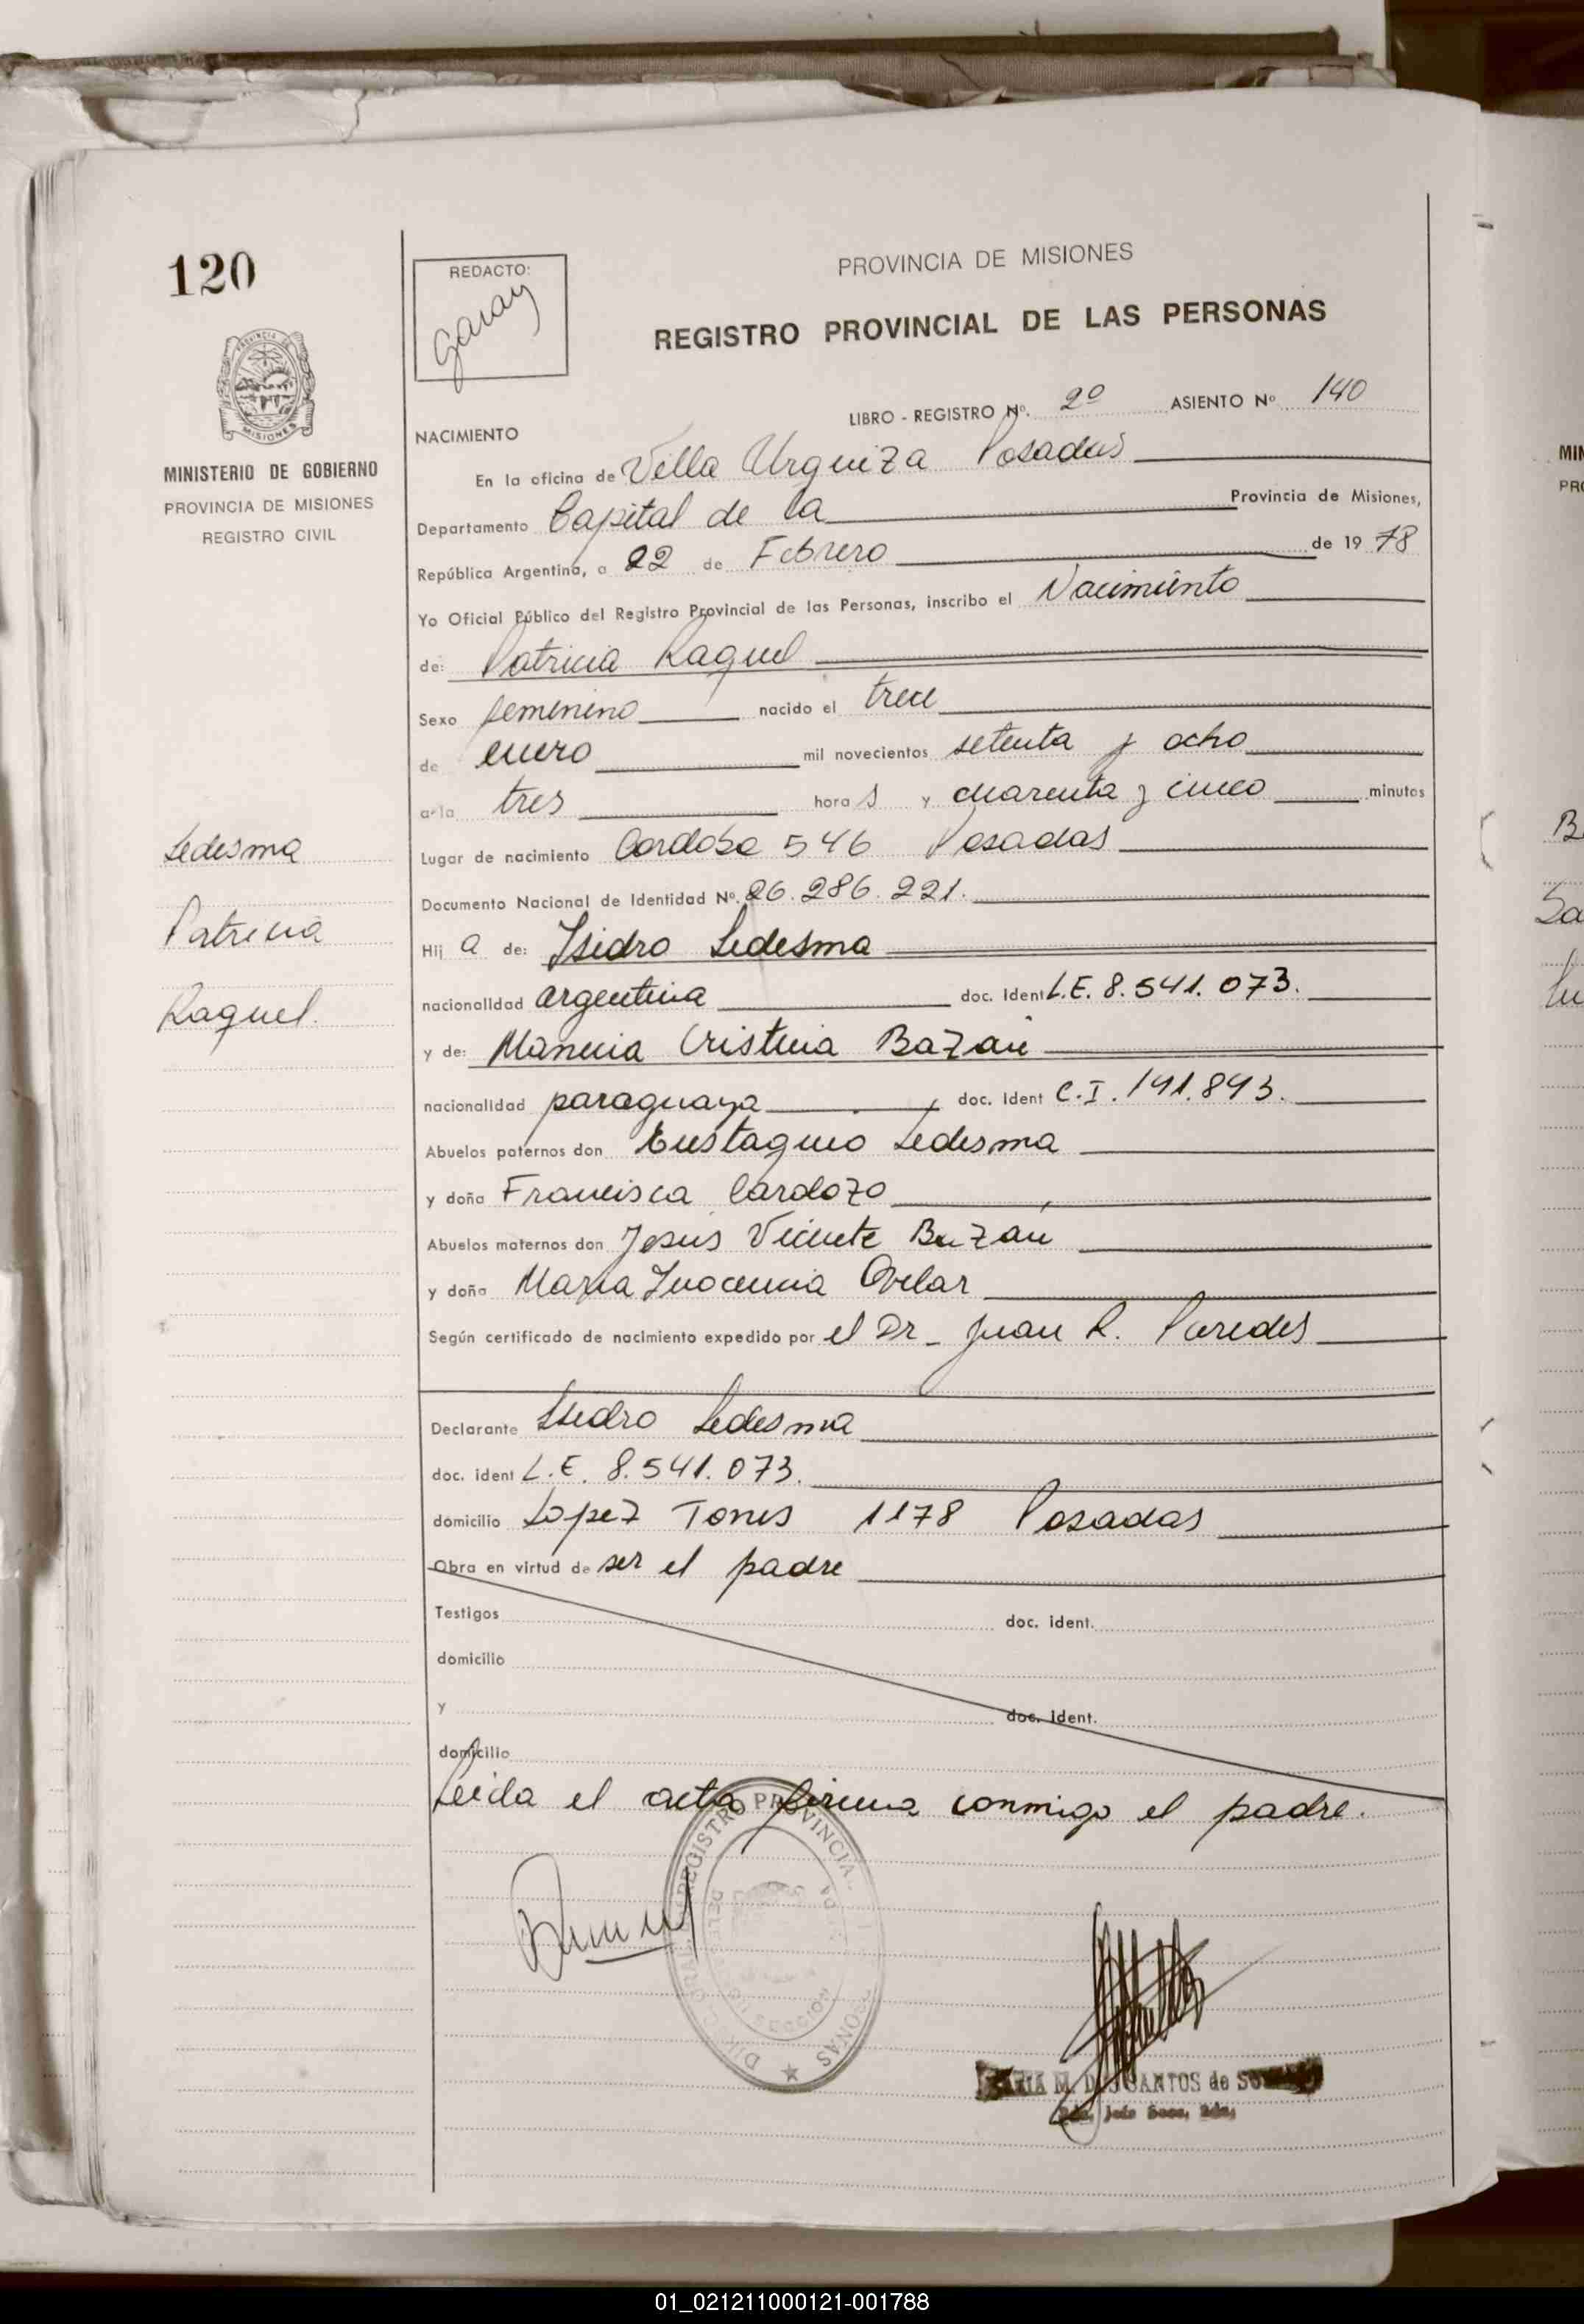 120
REDACTO:
Garay
PROVINCIA DE MISIONES
REGISTRO PROVINCIAL DE LAS PERSONAS
MINISTERIO DE GOBIERNO
PROVINCIA DE MISIONES
REGISTRO CIVIL
LIBRO - REGISTRO Nº. 2º ASIENTO Nº 140
NACIMIENTO
En la oficina de Villa Urquiza Posadas
Departamento Capital de la Provincia de Misiones,
República Argentina, a 22 de Febrero de 19 78
Yo Oficial Público del Registro Provincial de las Personas, inscribo el Nacimiento
de: Patricia Raquel
Sexo femenino nacido el trece
de enero mil novecientos setenta y ocho
a la tres hora s y cuarenta y cinco minutos
Lugar de nacimiento Cordoba 546 Posadas
Documento Nacional de Identidad Nº. 26.286.221.
Hij a de: Isidro Ledesma
nacionalidad argentina doc. Ident L.E. 8.541.073.
y de: Cristina Bazán
nacionalidad paraguaya doc. Ident C.I. 191.893.
Abuelos paternos don Eustaquio Ledesma
y doña Francisca Cardozo
Abuelos maternos don Jesús Vicente Bazán
y doña Maria Inocencia Ovelar
Según certificado de nacimiento expedido por el Dr. Juan R. Paredes
Declarante Isidro Ledesma
doc. ident L.E. 8.541.073.
domicilio Lopez Torres 1178 Posadas
Obra en virtud de ser el padre
Testigos doc. ident.
domicilio
y doc. ident.
domicilio
Leida el acta firma conmigo el padre.
Ledesma
Patricia
Raquel.
SANTOS de
01_021211000121-001788